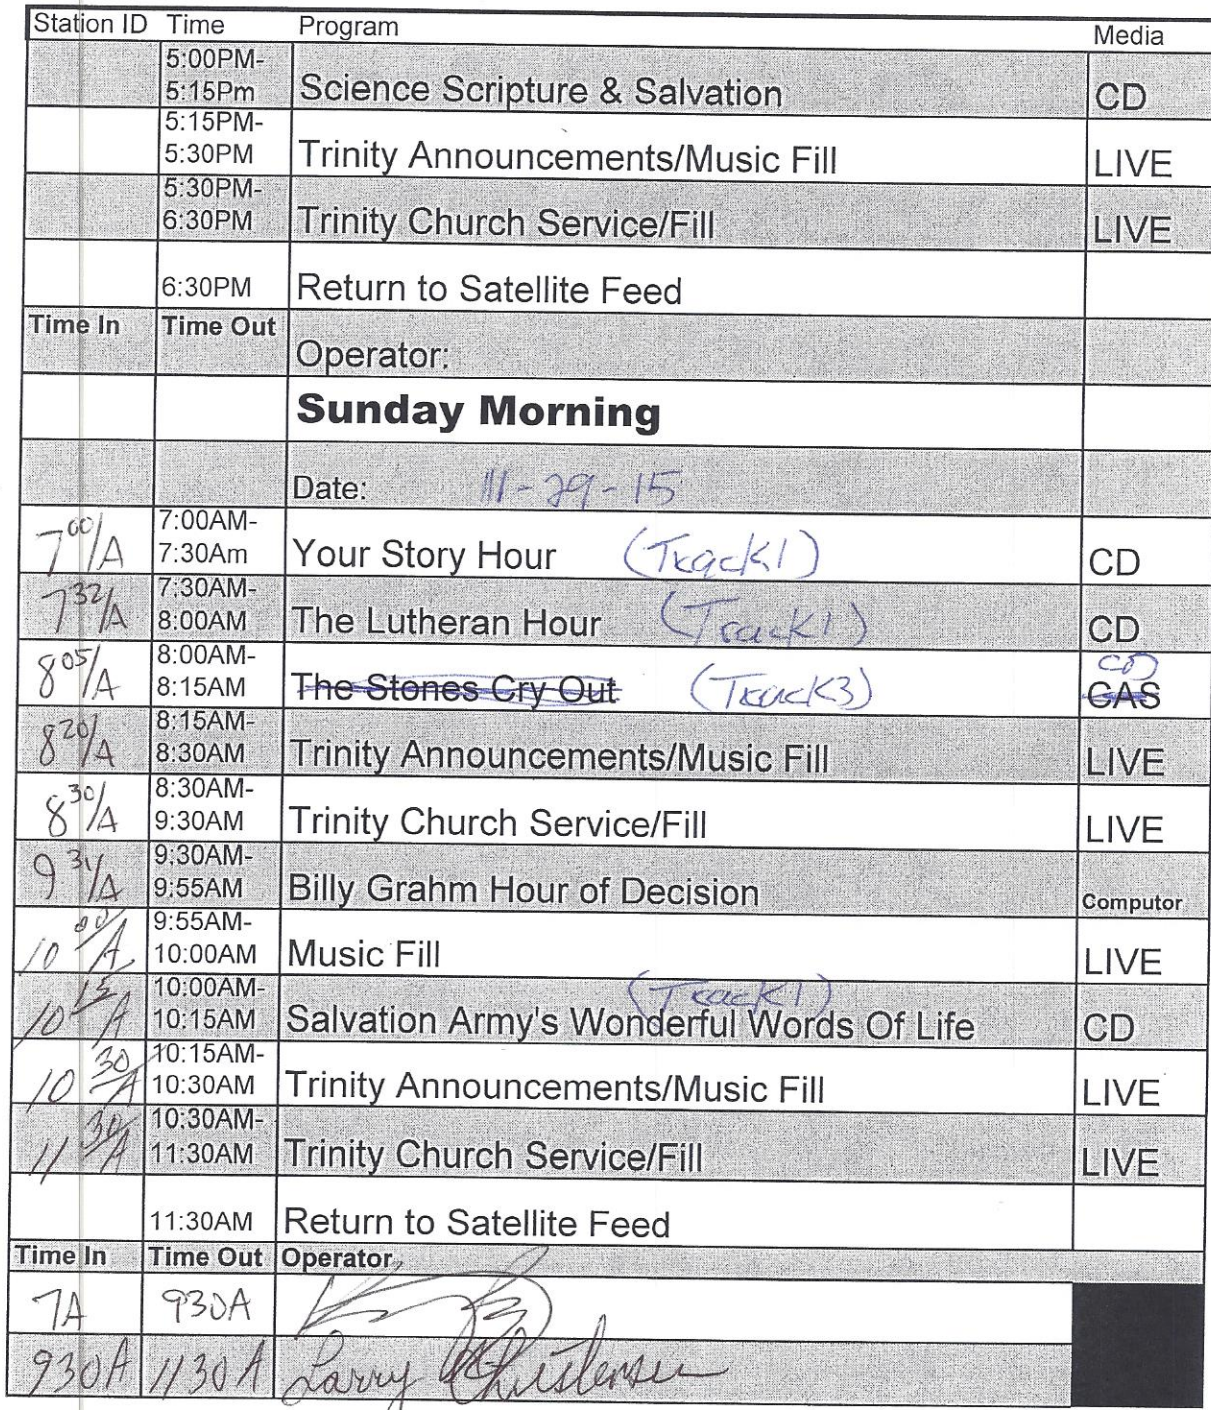 Station ID Time Program Media
5:00PM-
5:15Pm Science Scripture & Salvation CD
5:15PM-
5:30PM Trinity Announcements/Music Fill LIVE
5:30PM-
6:30PM Trinity Church Service/Fill LIVE
6:30PM Return to Satellite Feed
Time In Time Out
Operator:
Sunday Morning
Date: 11-29-15
7:00AM-
7 00/A 7:30Am Your Story Hour (Track 1) CD
7:30AM-
7 32/A 8:00AM The Lutheran Hour (Track 1) CD
8:00AM- CD
8 05/A 8:15AM The Stones Cry Out (Track 3) CAS
8:15AM-
8 20/A 8:30AM Trinity Announcements/Music Fill LIVE
8:30AM-
8 30/A 9:30AM Trinity Church Service/Fill LIVE
9:30AM-
9 34/A 9:55AM Billy Grahm Hour of Decision Computor
9:55AM-
10 00/A 10:00AM Music Fill LIVE
10:00AM- (Track 1)
10 15/A 10:15AM Salvation Army's Wonderful Words Of Life CD
10:15AM-
10 30/A 10:30AM Trinity Announcements/Music Fill LIVE
10:30AM-
11 30/A 11:30AM Trinity Church Service/Fill LIVE
11:30AM Return to Satellite Feed
Time In Time Out Operator
7A 930A
930A 1130A Larry Christensen